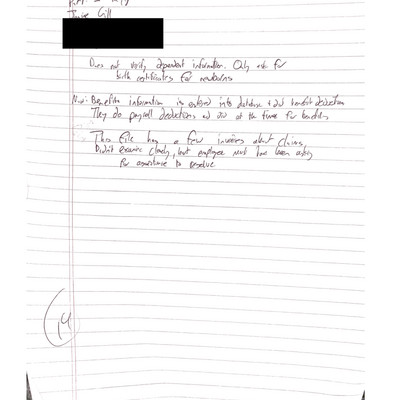 Does not verify dependent information. Only ask for
birth certificates for newborns
Next: Benefits information is entered into database
They do payroll deductions at the time for benefits
This file has a few invoices about claims,
Didn't examine closely, but employee must have been asking
for assistance to resolve
14